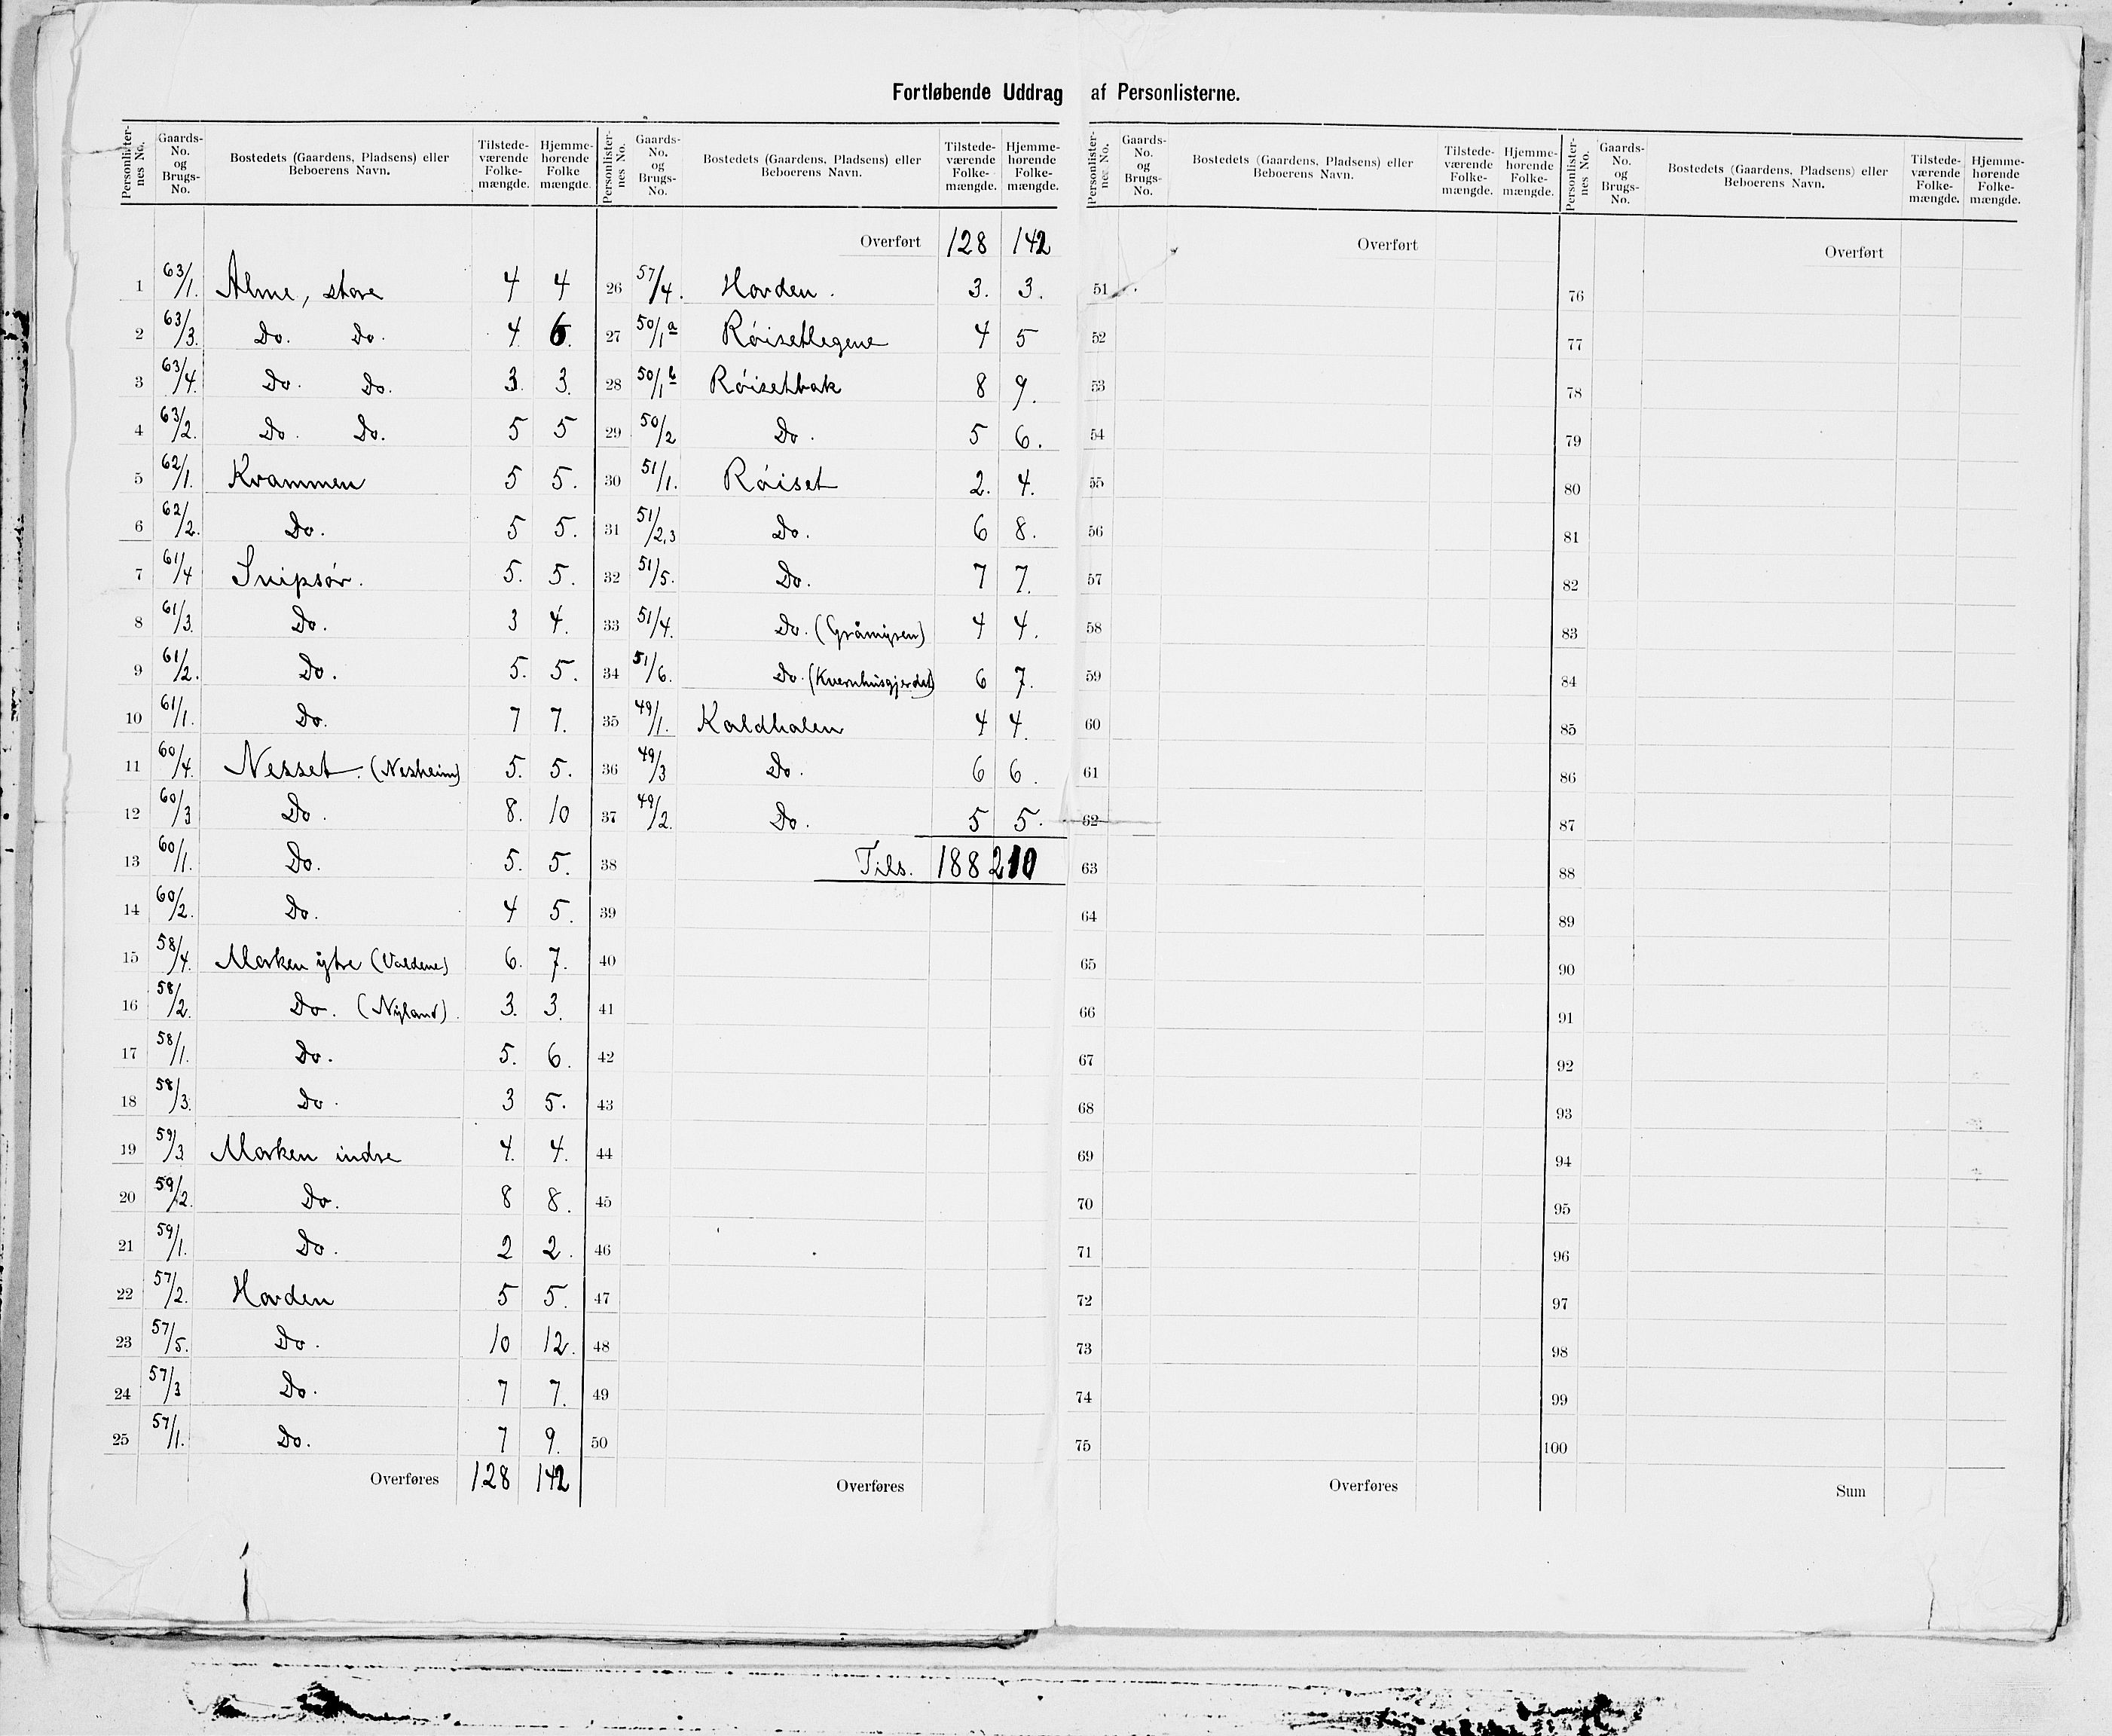 Fortløbende Uddrag af Personlisterne.
Personlisternes No. Gaards-No. og Brugs-No. Bostedets (Gaardens, Pladsens) eller Beboerens Navn. Tilstedeværende Folkemængde. Hjemmehørende Folke mængde.
1 63/1. Alme, store 4 4
2 63/3. Do. Do. 4. 6.
3 63/4. Do. Do. 3. 3.
4 63/2. Do. Do. 5 5
5 62/1. Kvammen 5 5.
6 62/2. Do. 5 5.
7 61/4 Snipsør. 5. 5.
8 61/3. Do. 3 4.
9 61/2. Do. 5. 5.
10 61/1. Do. 7 7.
11 60/4. Nesset. (Nesheim) 5. 5.
12 60/3 Do. 8. 10
13 60/1. Do. 5. 5.
14 60/2. Do. 4 5.
15 58/4. Morken ytre (Valdene) 6. 7.
16 58/2. Do. (Nyland). 3. 3.
17 58/1. Do. 5. 6.
18 58/3. Do. 3 5.
19 59/3 Morken indre 4. 4.
20 59/2. Do. 8 8.
21 59/1. Do. 2 2.
22 57/2. Horden 5 5.
23 57/5. Do. 10 12.
24 57/3 Do. 7 7.
25 57/1. Do. 7 9.
Overføres 128 142
Personlisternes No. Gaards-No. og Brugs-No. Bostedets (Gaardens, Pladsens) eller Beboerens Navn. Tilstedeværende Folkemængde. Hjemmehørende Folkemængde.
Overført 128 142
26 57/4. Horden. 3. 3.
27 50/1a Røisetlegene 4 5
28 50/1b Røisetbak 8 9.
29 50/2 Do. 5 6.
30 51/1. Røiset 2. 4.
31 51/2,3 Do. 6 8.
32 51/5. Do. 7 7.
33 51/4. Do. (Gråmyren) 4 4.
34 51/6. Do. (Kvernhusgjerdet) 6 7.
35 49/1. Kaldhalen 4 4.
36 49/3 Do. 6 6.
37 49/2. Do. 5 5.
38 Tils. 188 210
39
40
41
42
43
44
45
46
47
48
49
50
Overføres
Personlisternes No. Gaards-No. og Brugs-No. Bostedets (Gaardens, Pladsens) eller Beboerens Navn. Tilstedeværende Folkemængde. Hjemmehørende Folkemængde.
Overført
51
52
53
54
55
56
57
58
59
60
61
62
63
64
65
66
67
68
69
70
71
72
73
74
75
Overføres
Personlisternes No. Gaards-No. og Brugs-No. Bostedets (Gaardens, Pladsens) eller Beboerens Navn. Tilstedeværende Folkemængde. Hjemmehørende Folkemængde.
Overført
76
77
78
79
80
81
82
83
84
85
86
87
88
89
90
91
92
93
94
95
96
97
98
99
100
Sum